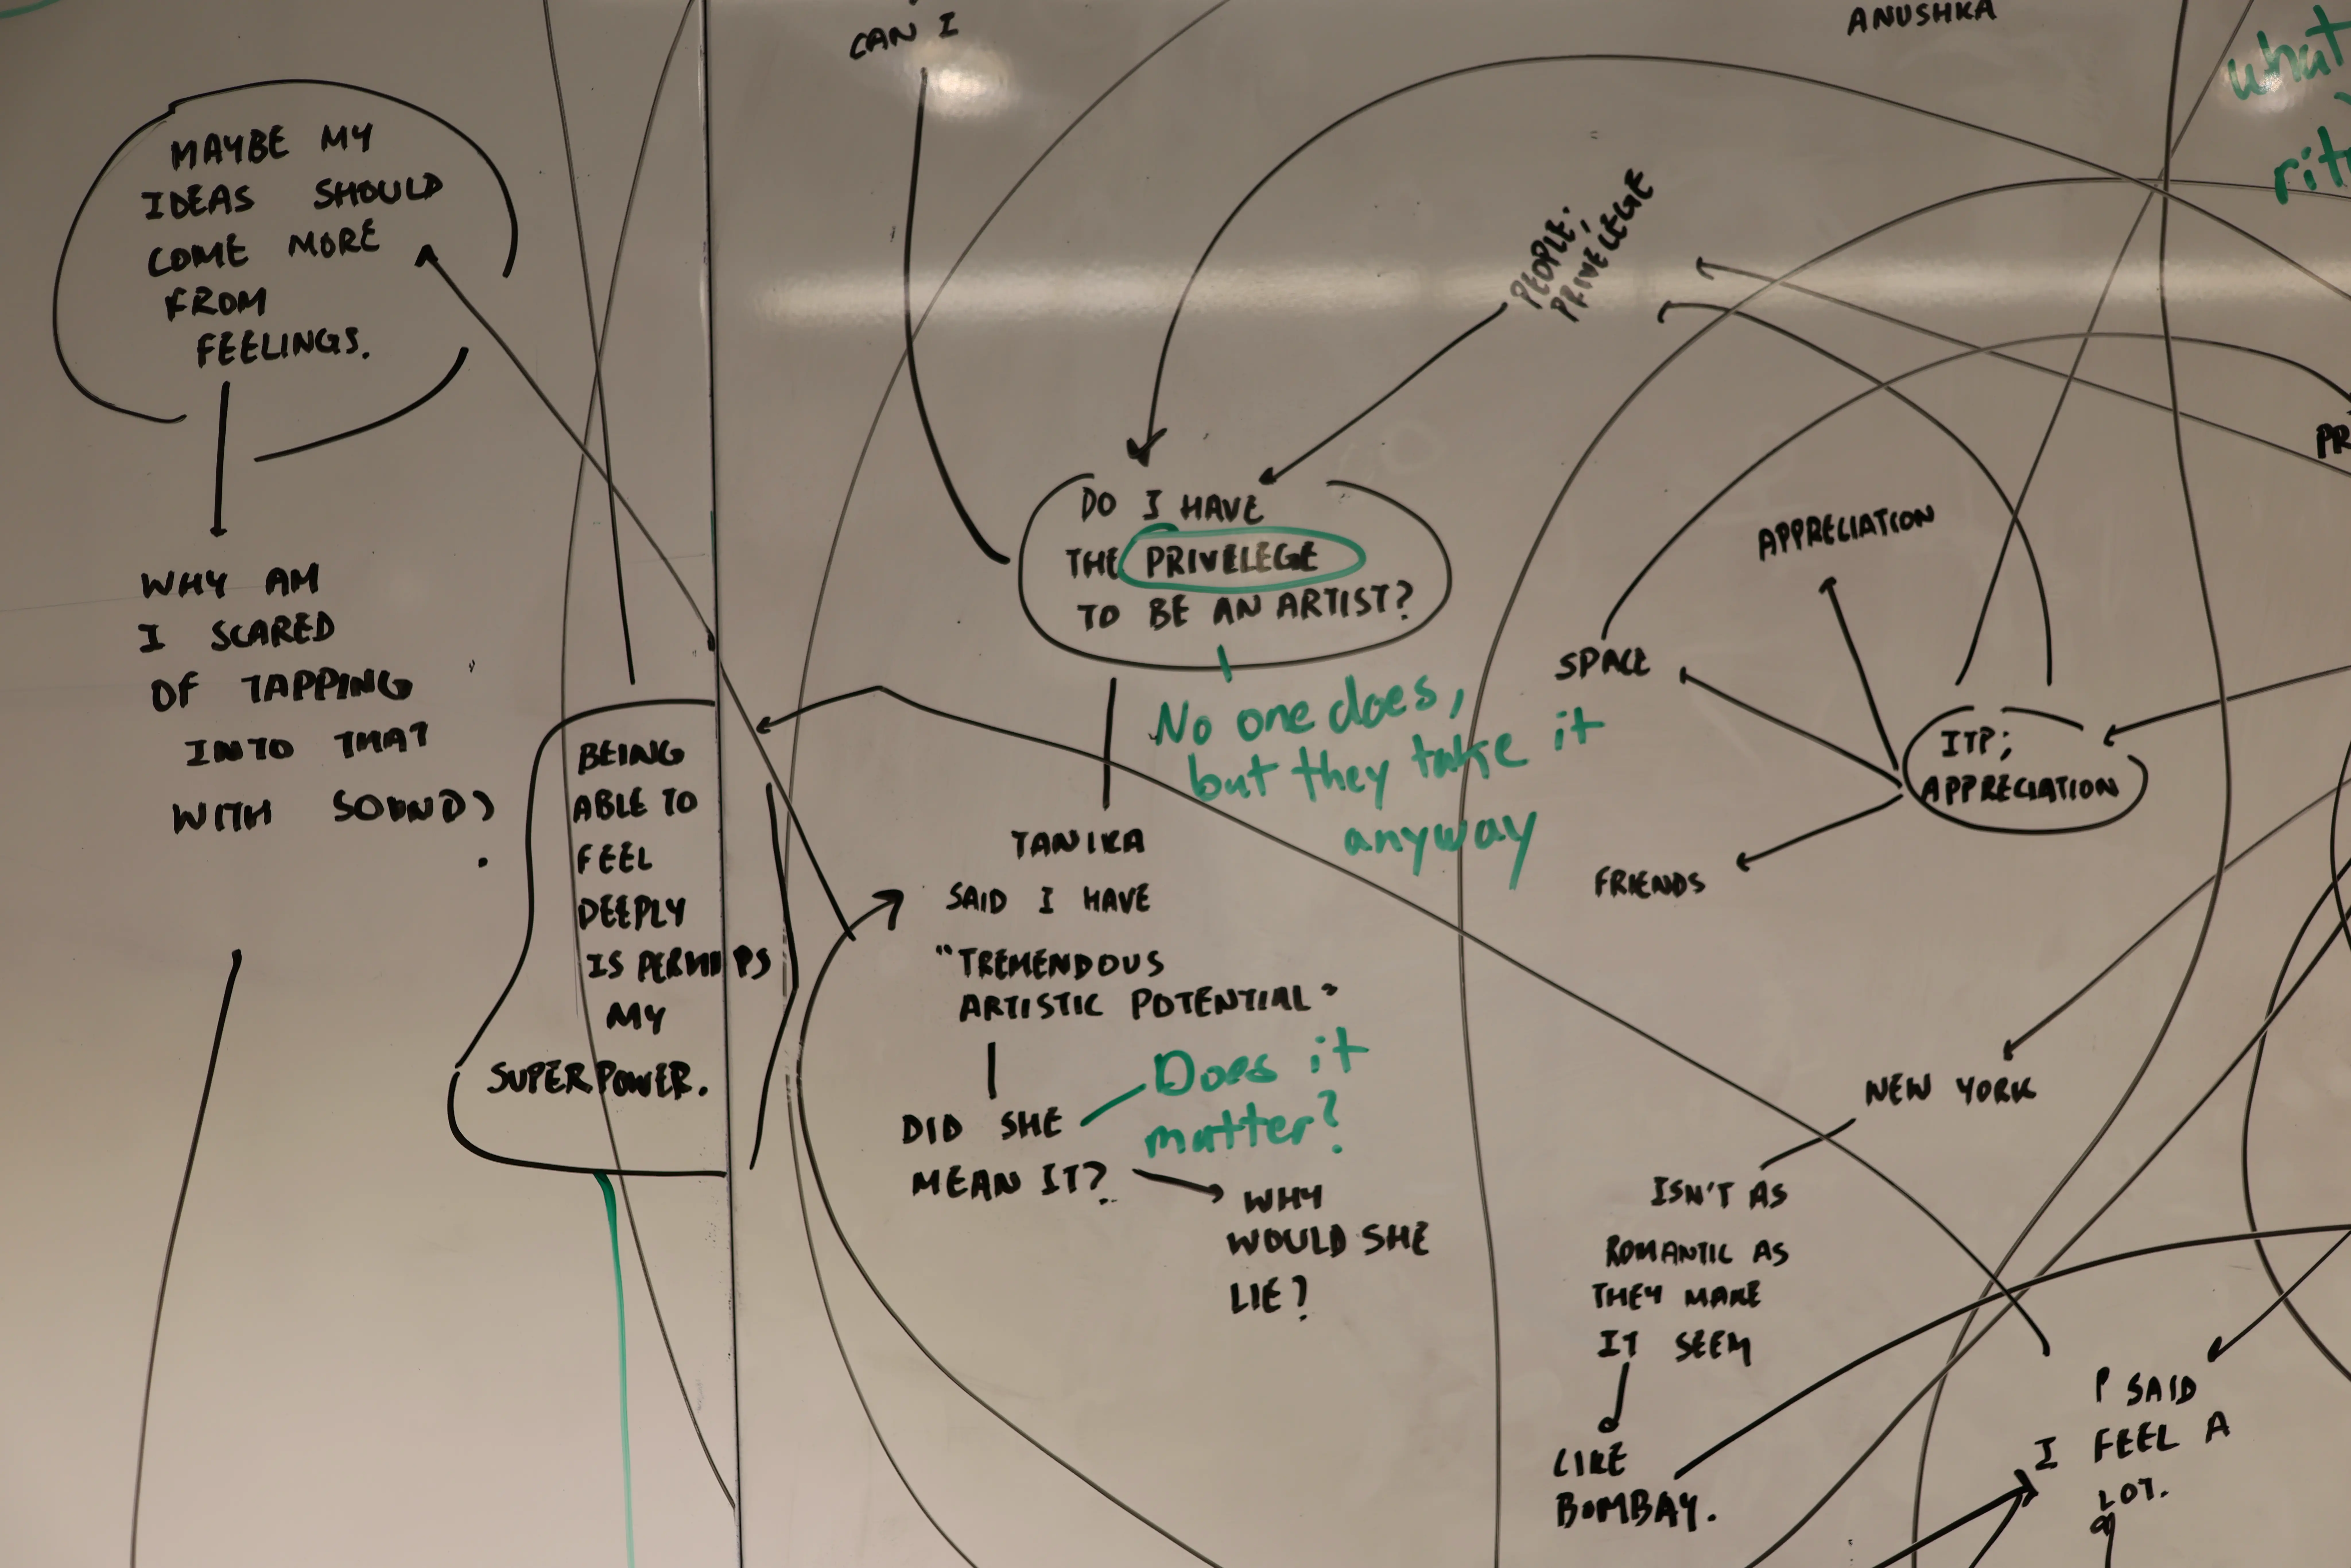 MAYBE MY
IDEAS SHOULD
COME MORE
FROM
FEELINGS.
WHY AM
I SCARED
OF TAPPING
INTO THAT
WITH SOUND?
BEING
ABLE TO
FEEL
DEEPLY
IS PERHAPS
MY
SUPERPOWER.
CAN I
DO I HAVE
THE PRIVELEGE
TO BE AN ARTIST?
No one does,
but they take it
anyway
TANIKA
SAID I HAVE
"TREMENDOUS
ARTISTIC POTENTIAL"
DID SHE
MEAN IT?
Does it
matter?
WHY
WOULD SHE
LIE?
PEOPLE;
PRIVELEGE
ANUSHKA
what
APPRECIATION
SPACE
ITP;
APPRECIATION
FRIENDS
NEW YORK
ISN'T AS
ROMANTIC AS
THEY MAKE
IT SEEM
LIKE
BOMBAY.
P SAID
I FEEL A
LOT.